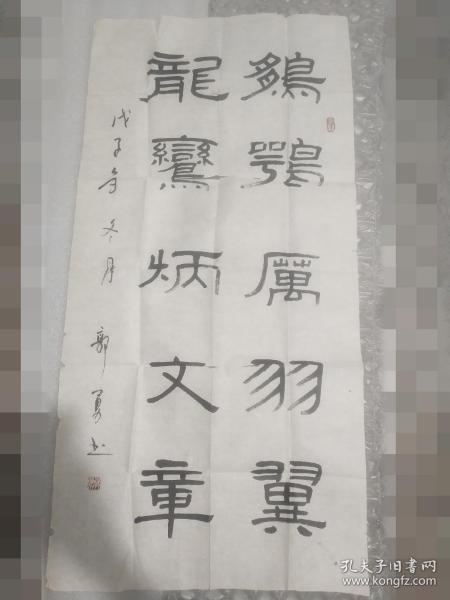 鶚厲羽翼
龍鸞炳文章
戊子年冬月 郭勇书
孔夫子旧书网
www.kongfz.com